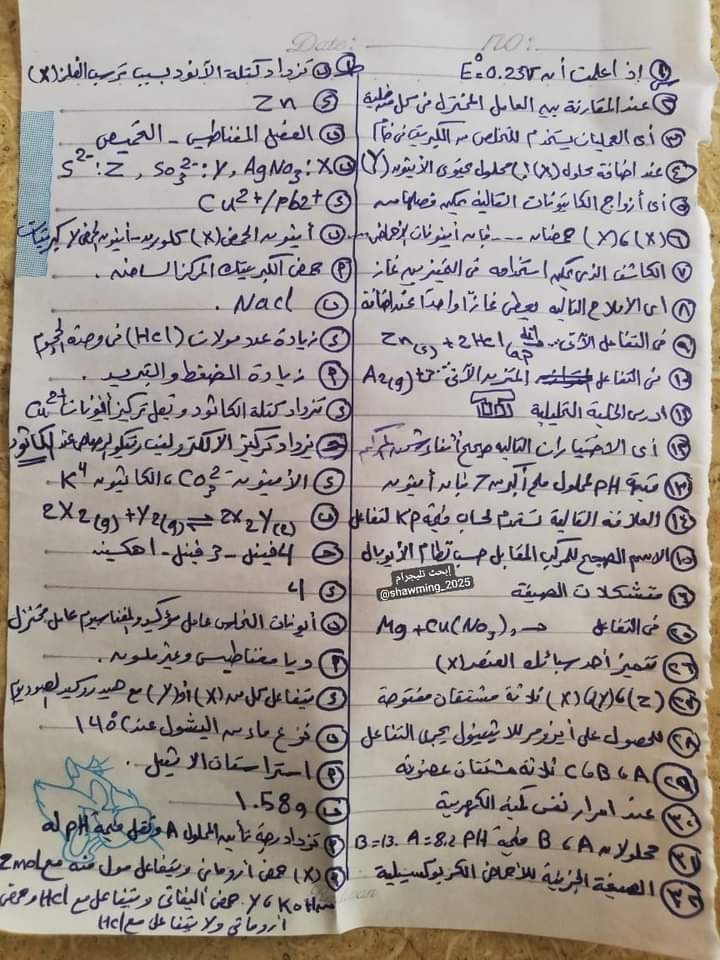 Date: no:
① إذا علمت أن E°= 0.23V
② عند المقارنة بين العامل المختزل فى كل من خلية
③ أى العمليات يستخدم للتخلص من الكبريت فى خام
④ عند اضافة محلول (X) إلى محلول يحتوى الأنيون (Y)
⑤ أى أزواج الكاتيونات التالية يمكن فصلهما
⑥ (X) ، (Y) حمضان ---- فإن أنيونات الأحماض
⑦ الكاشف الذى يمكن استخدامه فى التمييز بين غاز
⑧ أى الأملاح التالية يعطى غازاً واحداً عند اضافة
⑨ فى التفاعل الآتى.. Zn(s) + 2HCl
⑩ فى التفاعل المتزن الآتى A2(g) +
ادرس الخلية التحليلية
⑫ أى الاختيارات التالية صحيح أثناء شحن المركم
⑬ قيمة pH لمحلول ملح أكبر من 7 فإن أنيون
⑭ العلاقة التالية تستخدم لحساب قيمة Kp لتفاعل
⑮ الاسم الصحيح للمركب المقابل حسب نظام الأيوباك
⑯ متشكلات الصيغة
فى التفاعل Mg + Cu(NO3)2 →
تتميز أحد سبائك العنصر (X)
(X) (Y) ، (Z) ثلاثة مشتقات مفتوحة
للحصول على أيزومر للإيثينول يجرى التفاعل
A ، B ، C ثلاثة مشتقات عضوية
عند امرار نفس كمية الكهربية
محلولان A ، B قيمة PH A = 8.2 . B = 13
الصيغة الجزيئية للأحماض الكربوكسيلية
تزداد كتلة الآنود بسبب ترسب الفلز (X)
Zn
الفصل المغناطيسى - التحميص
X : AgNO3 , Y : SO3 2- , Z : S2-
Cu2+ / Pb2+
أنيون الحمض (X) كلوريد - أنيون الحمض
حمض الكبريتيك المركز الساخن .
NaCl .
زيادة عدد مولات (HCl) فى وحدة الحجوم
زيادة الضغط والتبريد .
تزداد كتلة الكاثود ويقل تركيز أيونات Cu2+
يزداد تركيز الالكتروليت ويتكون الرصاص عند الكاثود
الأنيون CO3 2- ، الكاتيون K+
2X2(g) + Y2(g) ⇌ 2X2Y(g)
4 فينيل - 3 فينيل - 1 هكسين
4
أيونات النحاس عامل مؤكسد والمغنسيوم عامل مختزل
ديا مغناطيسى وغير ملون .
يتفاعل كل من (X) أو (Y) مع هيدروكسيد الصوديوم
نزع ماء من الإيثانول عند 140°
استر اسيتات الايثيل .
1.58g
تزداد درجة تأين المحلول A وتقل قيمة pH له
(X) حمض أروماتى ويتفاعل مول منه مع 2mol
من KOH ، Y حمض أليفاتى ويتفاعل مع HCl وحمض
أروماتى ولا يتفاعل مع HCl
إبحث تليجرام
@shawming_2025